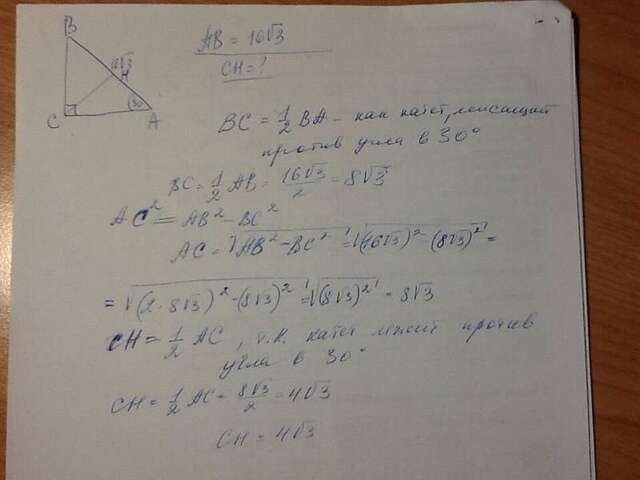 B
16√3
H
C
30
A
AB = 16√3
CH = ?
BC = 1/2 BA - как катет, лежащий
против угла в 30°
BC = 1/2 AB = 16√3/2 = 8√3
AC² = AB² - BC²
AC = √(AB² - BC²) = √((16√3)² - (8√3)²) =
= √((2·8√3)² - (8√3)²) = √((8√3)²) = 8√3
CH = 1/2 AC, т.к. катет лежит против
угла в 30°
CH = 1/2 AC = 8√3/2 = 4√3
CH = 4√3